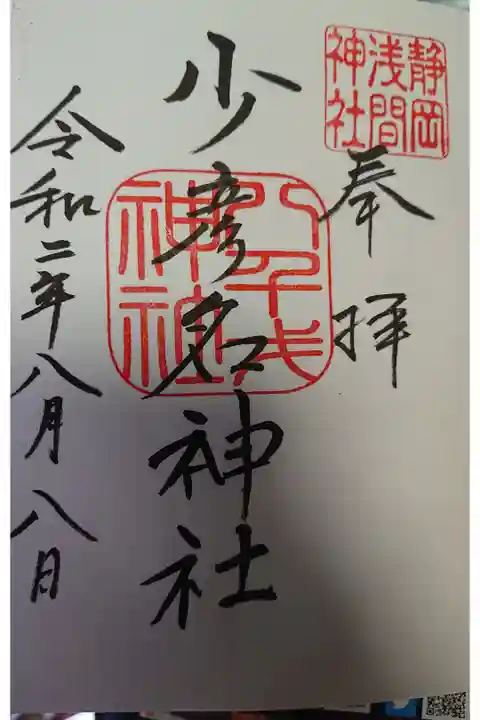 静岡
浅間
神社
奉拝
少彦名神社
八千戈
神社
令和二年八月八日